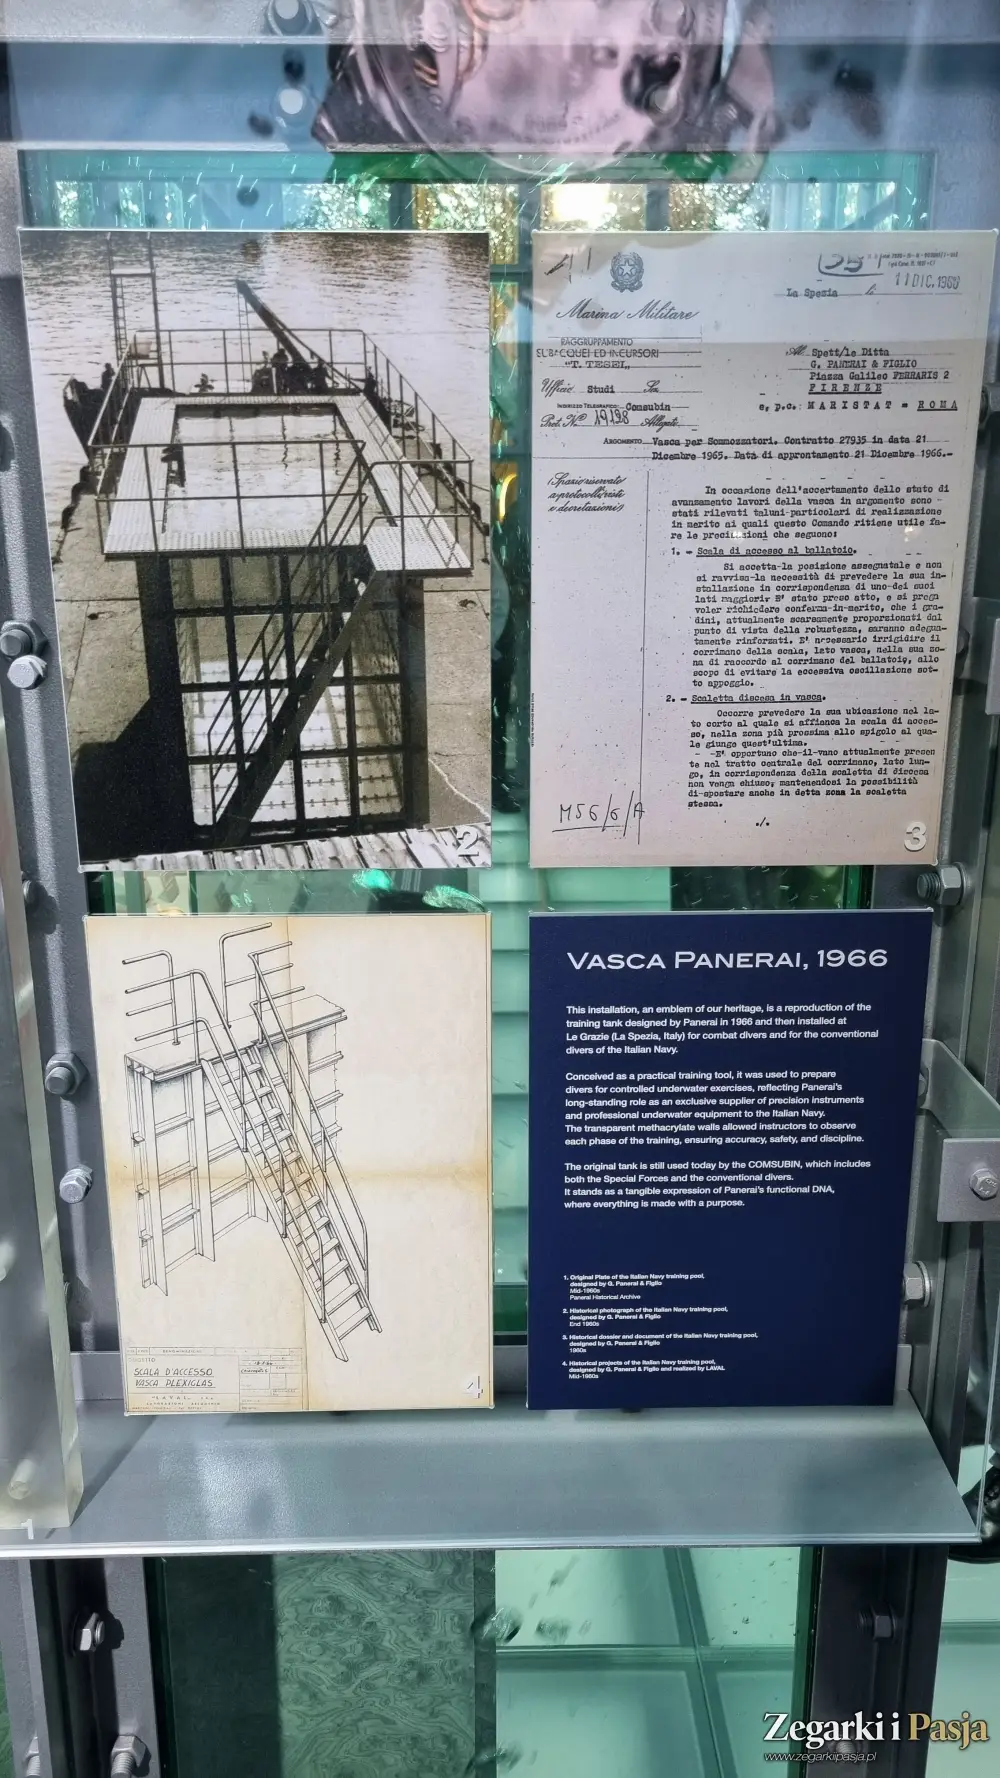 2
Marina Militare
RAGGRUPPAMENTO
SUBACQUEI ED INCURSORI
"T. TESEI"
Ufficio Studi Sez.
INDIRIZZO TELEGRAFICO: Comsubin
Prot. N.° 19198 Allegati
La Spezia li 11 DIC. 1966
All Spett/le Ditta
G. PANERAI & FIGLIO
Piazza Galileo FERRARIS 2
FIRENZE
e, p.c. MARISTAT = ROMA
ARGOMENTO Vasca per Sommozzatori. Contratto 27935 in data 21
Dicembre 1965. Data di approntamento 21 Dicembre 1966.-
(Spazio riservato
a protocolli, visti
e decretazioni)
In occasione dell'accertamento dello stato di
avanzamento lavori della vasca in argomento sono
stati rilevati taluni particolari di realizzazione
in merito ai quali questo Comando ritiene utile fa-
re le precisazioni che seguono:
1. - Scala di accesso al ballatoio.
Si accetta la posizione assegnatale e non
si ravvisa la necessità di prevedere la sua in-
stallazione in corrispondenza di uno dei suoi
lati maggiori. E' stato preso atto, e si prega
voler richiedere conferma in merito, che i gra-
dini, attualmente scarsamente proporzionati dal
punto di vista della robustezza, saranno adegua-
tamente rinforzati. E' necessario irrigidire il
corrimano della scala, lato vasca, nella sua zo-
na di raccordo al corrimano del ballatoio, allo
scopo di evitare la eccessiva oscillazione sot-
to appoggio.
2. - Scaletta discesa in vasca.
Occorre prevedere la sua ubicazione nel la-
to corto al quale si affianca la scala di acces-
so, nella zona più prossima allo spigolo al qua-
le giunge quest'ultima.
- E' opportuno che il vano attualmente presen
te nel tratto centrale del corrimano, lato lun-
go, in corrispondenza della scaletta di discesa
non venga chiuso, mantenendosi la possibilità
di spostare anche in detta zona la scaletta
stessa.
./.
M56/6/A
3
SCALA D'ACCESSO
VASCA PLEXIGLAS
4
VASCA PANERAI, 1966
This installation, an emblem of our heritage, is a reproduction of the
training tank designed by Panerai in 1966 and then installed at
Le Grazie (La Spezia, Italy) for combat divers and for the conventional
divers of the Italian Navy.
Conceived as a practical training tool, it was used to prepare
divers for controlled underwater exercises, reflecting Panerai's
long-standing role as an exclusive supplier of precision instruments
and professional underwater equipment to the Italian Navy.
The transparent methacrylate walls allowed instructors to observe
each phase of the training, ensuring accuracy, safety, and discipline.
The original tank is still used today by the COMSUBIN, which includes
both the Special Forces and the conventional divers.
It stands as a tangible expression of Panerai's functional DNA,
where everything is made with a purpose.
1. Original Plate of the Italian Navy training pool,
designed by G. Panerai & Figlio
Mid-1960s
Panerai Historical Archive
2. Historical photograph of the Italian Navy training pool,
designed by G. Panerai & Figlio
End 1960s
3. Historical dossier and document of the Italian Navy training pool,
designed by G. Panerai & Figlio
1960s
4. Historical projects of the Italian Navy training pool,
designed by G. Panerai & Figlio and realized by LAVAL
Mid-1960s
1
Zegarki i Pasja
www.zegarkiipasja.pl